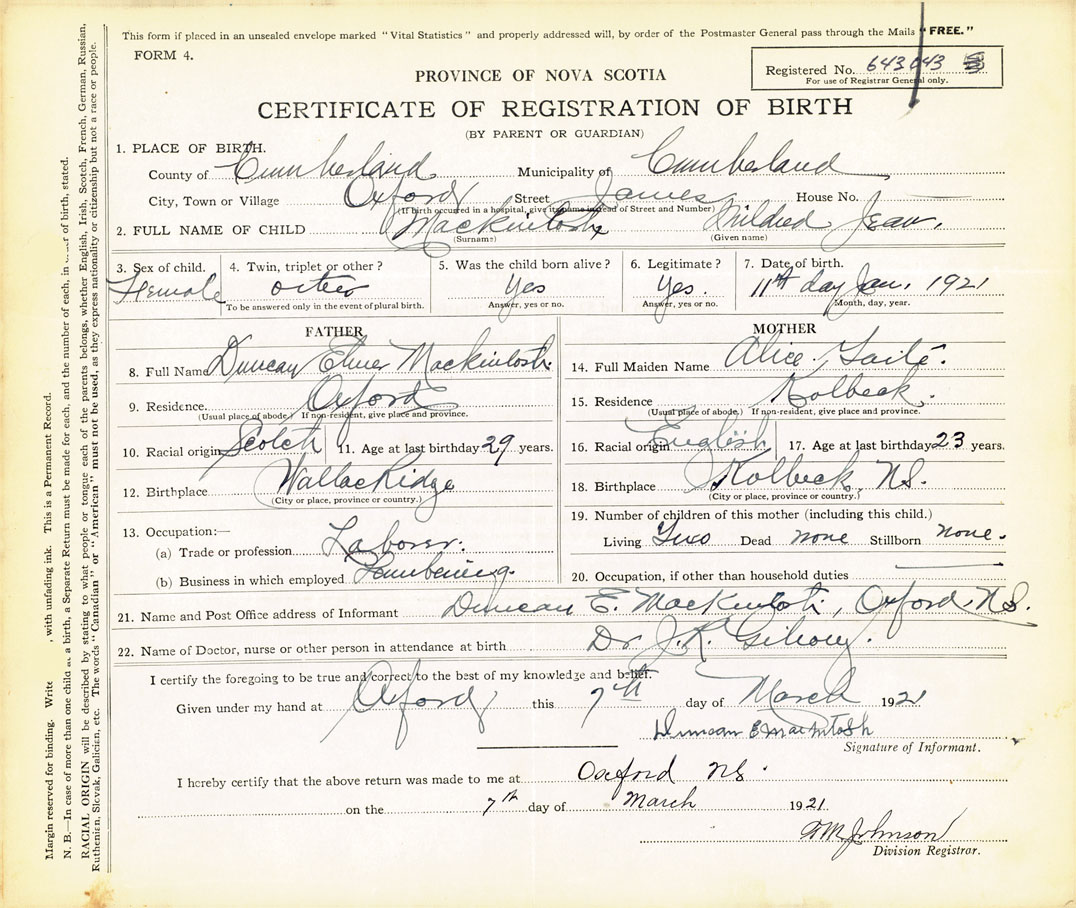 This form if placed in an unsealed envelope marked "Vital Statistics" and properly addressed will, by order of the Postmaster General pass through the Mails "FREE."
FORM 4.
Registered No. 643043
For use of Registrar General only.
PROVINCE OF NOVA SCOTIA
CERTIFICATE OF REGISTRATION OF BIRTH
(BY PARENT OR GUARDIAN)
1. PLACE OF BIRTH.
County of Cumberland Municipality of Cumberland
City, Town or Village Oxford Street James House No.
(If birth occurred in a hospital, give its name instead of Street and Number)
2. FULL NAME OF CHILD Mackintosh Mildred Jean.
(Surname) (Given name)
3. Sex of child. 4. Twin, triplet or other? 5. Was the child born alive? 6. Legitimate? 7. Date of birth.
Female other Yes Yes. 11th day Jan. 1921
To be answered only in the event of plural birth. Answer, yes or no. Answer, yes or no. Month, day, year.
FATHER
8. Full Name Duncan Elmer Mackintosh
9. Residence. Oxford
(Usual place of abode.) If non-resident, give place and province.
10. Racial origin Scotch 11. Age at last birthday 29 years.
12. Birthplace Wallace Ridge
(City or place, province or country.)
13. Occupation:—
(a) Trade or profession Laborer.
(b) Business in which employed Lumbering.
MOTHER
14. Full Maiden Name Alice
15. Residence Kolbeck.
(Usual place of abode.) If non-resident, give place and province.
16. Racial origin English 17. Age at last birthday 23 years.
18. Birthplace Kolbeck, NS.
(City or place, province or country.)
19. Number of children of this mother (including this child.)
Living Two Dead none Stillborn none.
20. Occupation, if other than household duties
21. Name and Post Office address of Informant Duncan E. Mackintosh, Oxford, NS.
22. Name of Doctor, nurse or other person in attendance at birth Dr. J. R.
I certify the foregoing to be true and correct to the best of my knowledge and belief.
Given under my hand at Oxford this 7th day of March 1921
Duncan E Mackintosh
Signature of Informant.
I hereby certify that the above return was made to me at Oxford NS.
on the 7th day of March 1921.
Johnson
Division Registrar.
Margin reserved for binding. Write , with unfading ink. This is a Permanent Record.
N. B.—In case of more than one child at a birth, a Separate Return must be made for each, and the number of each, in of birth, stated.
RACIAL ORIGIN will be described by stating to what people or tongue each of the parents belongs, whether English, Irish, Scotch, French, German, Russian,
Ruthenien, Slovak, Galician, etc. The words "Canadian" or "American" must not be used, as they express nationality or citizenship but not a race or people.